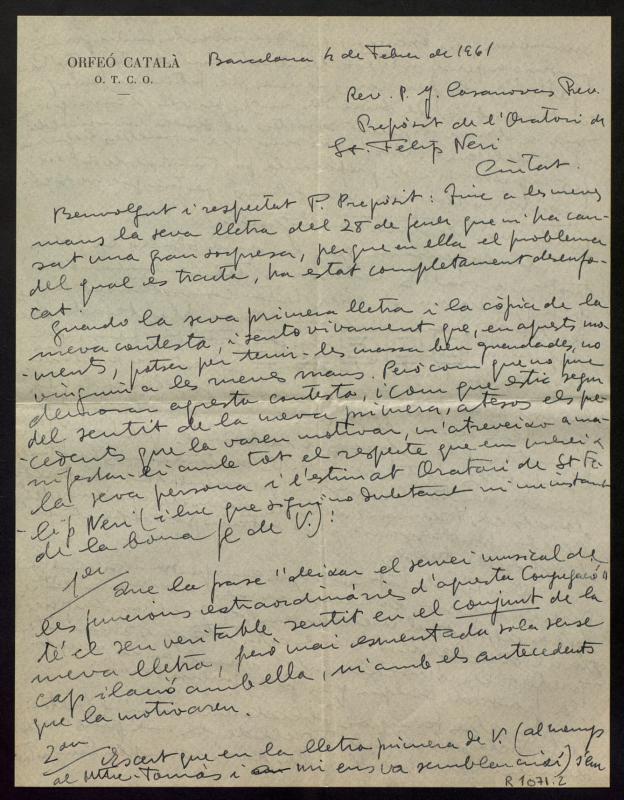 ORFEÓ CATALÀ
O. T. C. O.
Barcelona 4 de Febrer de 1961
Rev. P. J. Casanovas Prev.
Prepòsit de l'Oratori de
St. Felip Neri
Ciutat.
Benvolgut i respectat P. Prepòsit: Tinc a les meves
mans la seva lletra del 28 de gener que m'ha cau-
sat una gran sorpresa, perque en ella el problema
del qual es tracta, ha estat completament desenfo-
cat.
Guardo la seva primera lletra i la còpia de la
meva contesta, i sento vivament que, en aquests mo-
-ments, potser per tenir-les massa ben guardades, no
vinguin a les meves mans. Però com que no puc
demorar aquesta contesta, i com que estic segur
del sentit de la meva primera, atesos els pre-
-cedents que la varen motivar, m'atreveixo a ma-
nifestar-li amb tot el respecte que em mereix
la seva persona i l'estimat Oratori de St Fe-
lip Neri (i lluc que sigui no dubtant ni un instant
de la bona fe de V.):
1er
Que la frase "deixar el servei musical de
les funcions extraordinàries d'aquesta Congregació"
té el seu veritable sentit en el conjunt de la
meva lletra, però mai esmentada sola sense
cap ilació amb ella, ni amb els antecedents
que la motivaren.
2on
Es cert que en la lletra primera de V. (al menys
al Mtre. Tomàs i a mi ens va semblar així) s'em
R 1071.2